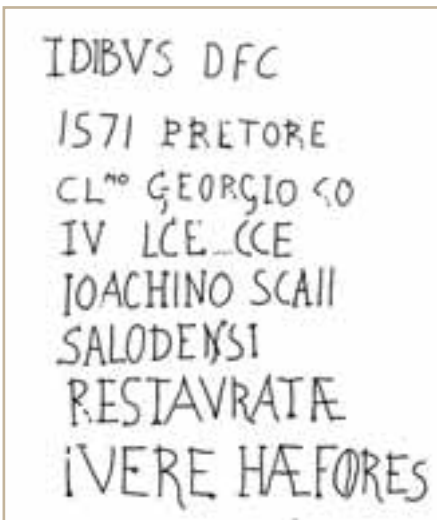 IDIBVS DFC
1571 PRETORE
CL^MO GEORGIO CO
IV LCE_CCE
IOACHINO SCAII
SALODENSI
RESTAVRATÆ
iVERE HÆFORES